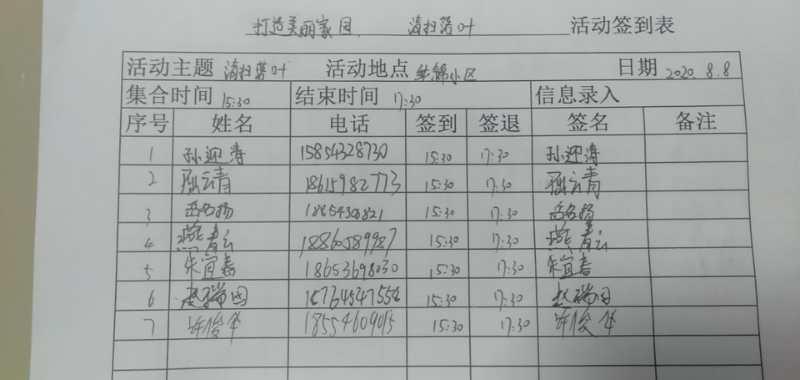 打造美丽家园 清扫落叶 活动签到表
活动主题 清扫落叶 活动地点 小区 日期 2020 8.8
集合时间 15:30 结束时间 17:30 信息录入
序号 姓名 电话 签到 签退 签名 备注
1 孙迎涛 15854328730 15:30 17:30 孙迎涛
2 18615982773 15:30 17:30
3 15:30 17:30
4 燕青云 15:30 17:30 燕青云
5 朱宜嘉 18653698030 15:30 17:30 朱宜嘉
6 赵瑞国 15:30 17:30 赵瑞国
7 许俊华 15:30 17:30 许俊华